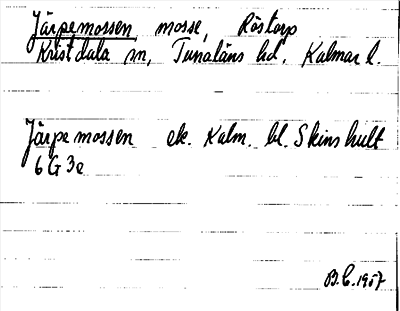 Järpemossen mosse, Röstorp
Kristdala sn, Tunaläns hd, Kalmar l.
Järpemossen ek. Kalm. bl. Skinshult
6G3e
B.C. 1957